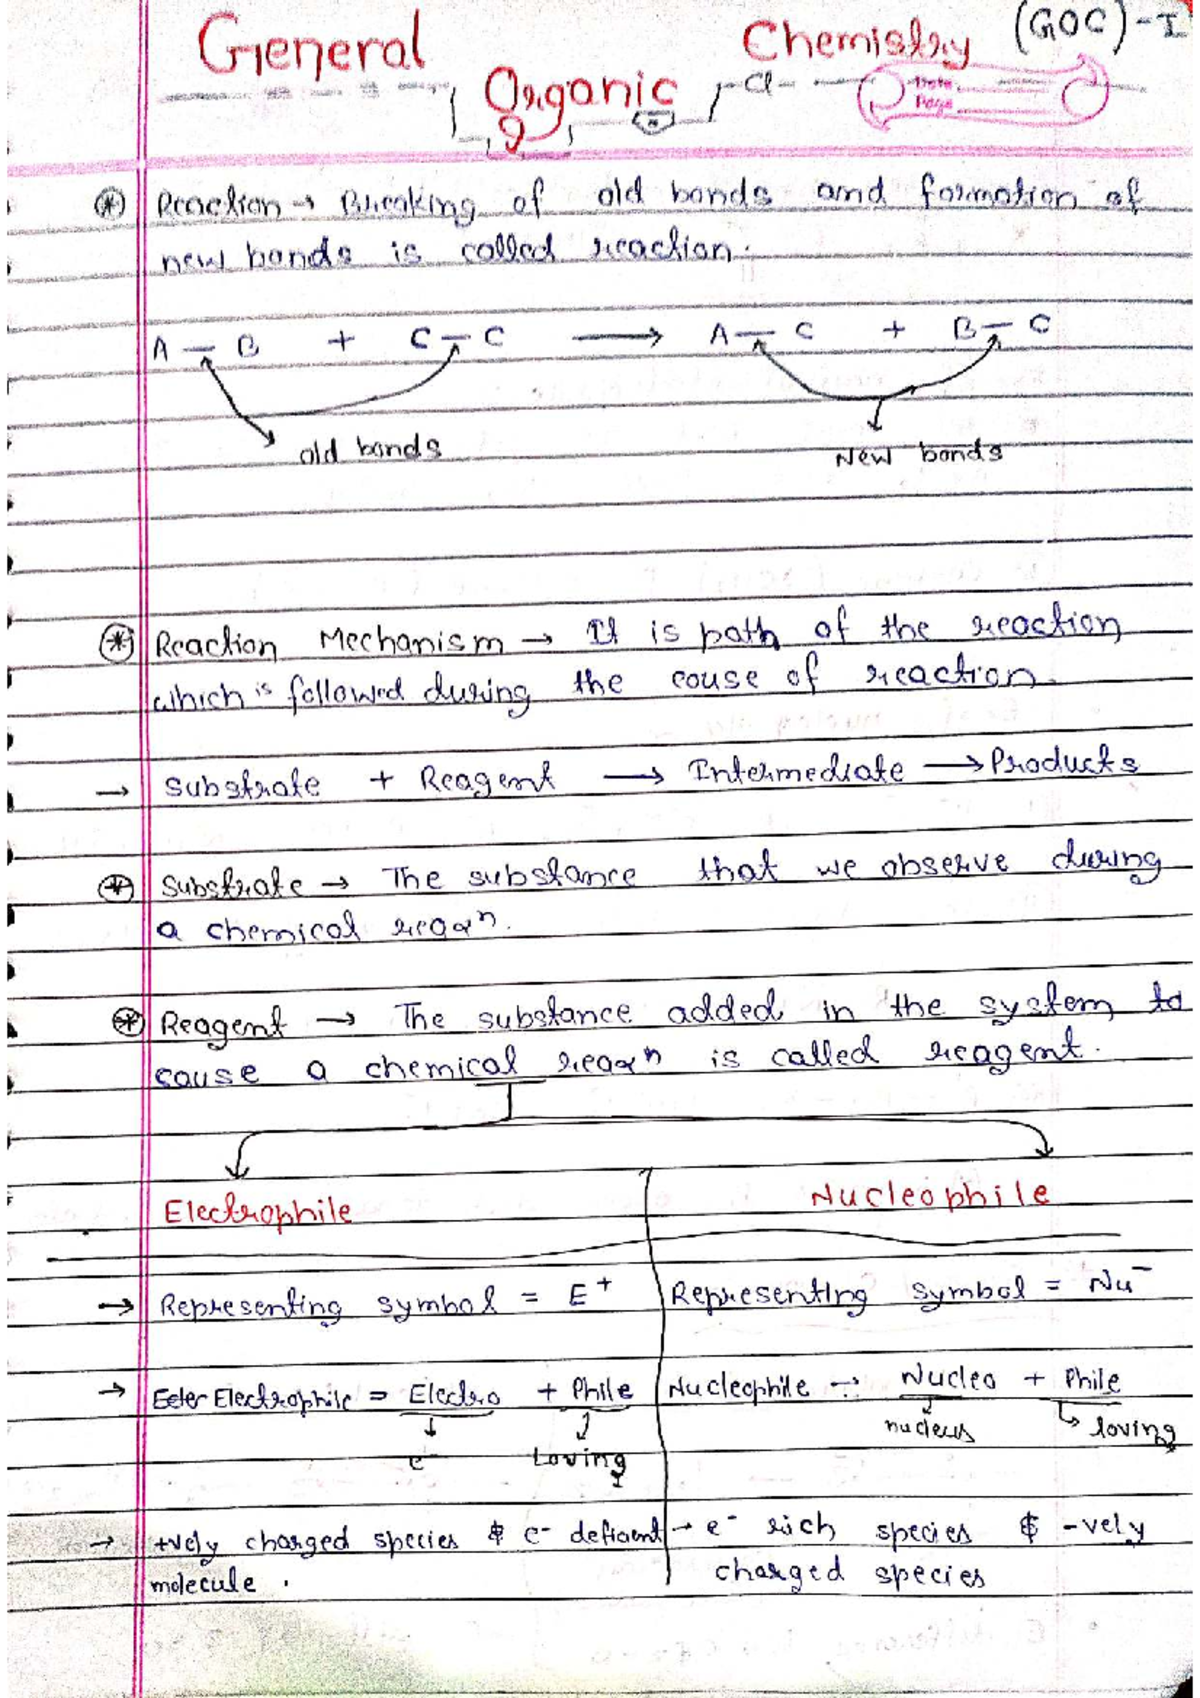 General Organic Chemistry (GOC)-I
Date
Page
Reaction → Breaking of old bonds and formation of
new bonds is called reaction.
A — B + C — C → A — C + B — C
old bonds New bonds
Reaction Mechanism → It is path of the reaction
which is followed during the couse of reaction.
→ Substrate + Reagent → Intermediate → Products
Substrate → The substance that we observe during
a chemical reaαⁿ.
Reagent → The substance added in the system to
cause a chemical reaαⁿ is called reagent.
Electrophile Nucleophile
→ Representing symbol = E⁺ Representing symbol = Nu⁻
→ Electrophile = Electro + Phile Nucleophile → Nucleo + Phile
e⁻ Loving nucleus loving
→ +vely charged species & e⁻ deficient → e⁻ rich species & -vely
molecule. charged species